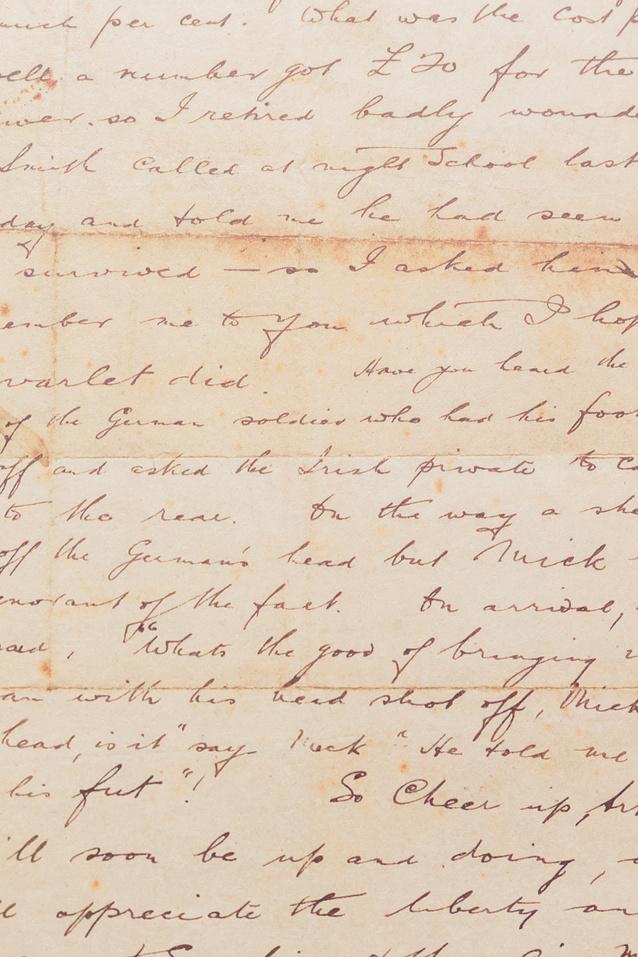 per cent. What was the cost
a number got £20 for the
so I retired badly
Smith called at night School last
day and told me he had seen
survived — so I asked him
me to you which I
varlet did. Have you heard the
of the German soldier who had his
off and asked the Irish private to
to the rear. On the way a
off the German's head but Mick
of the fact. On arrival,
"Whats the good of bringing
with his head shot off,
head, is it" say "He told me
his fut"! So Cheer up,
soon be up and doing,
appreciate the liberty